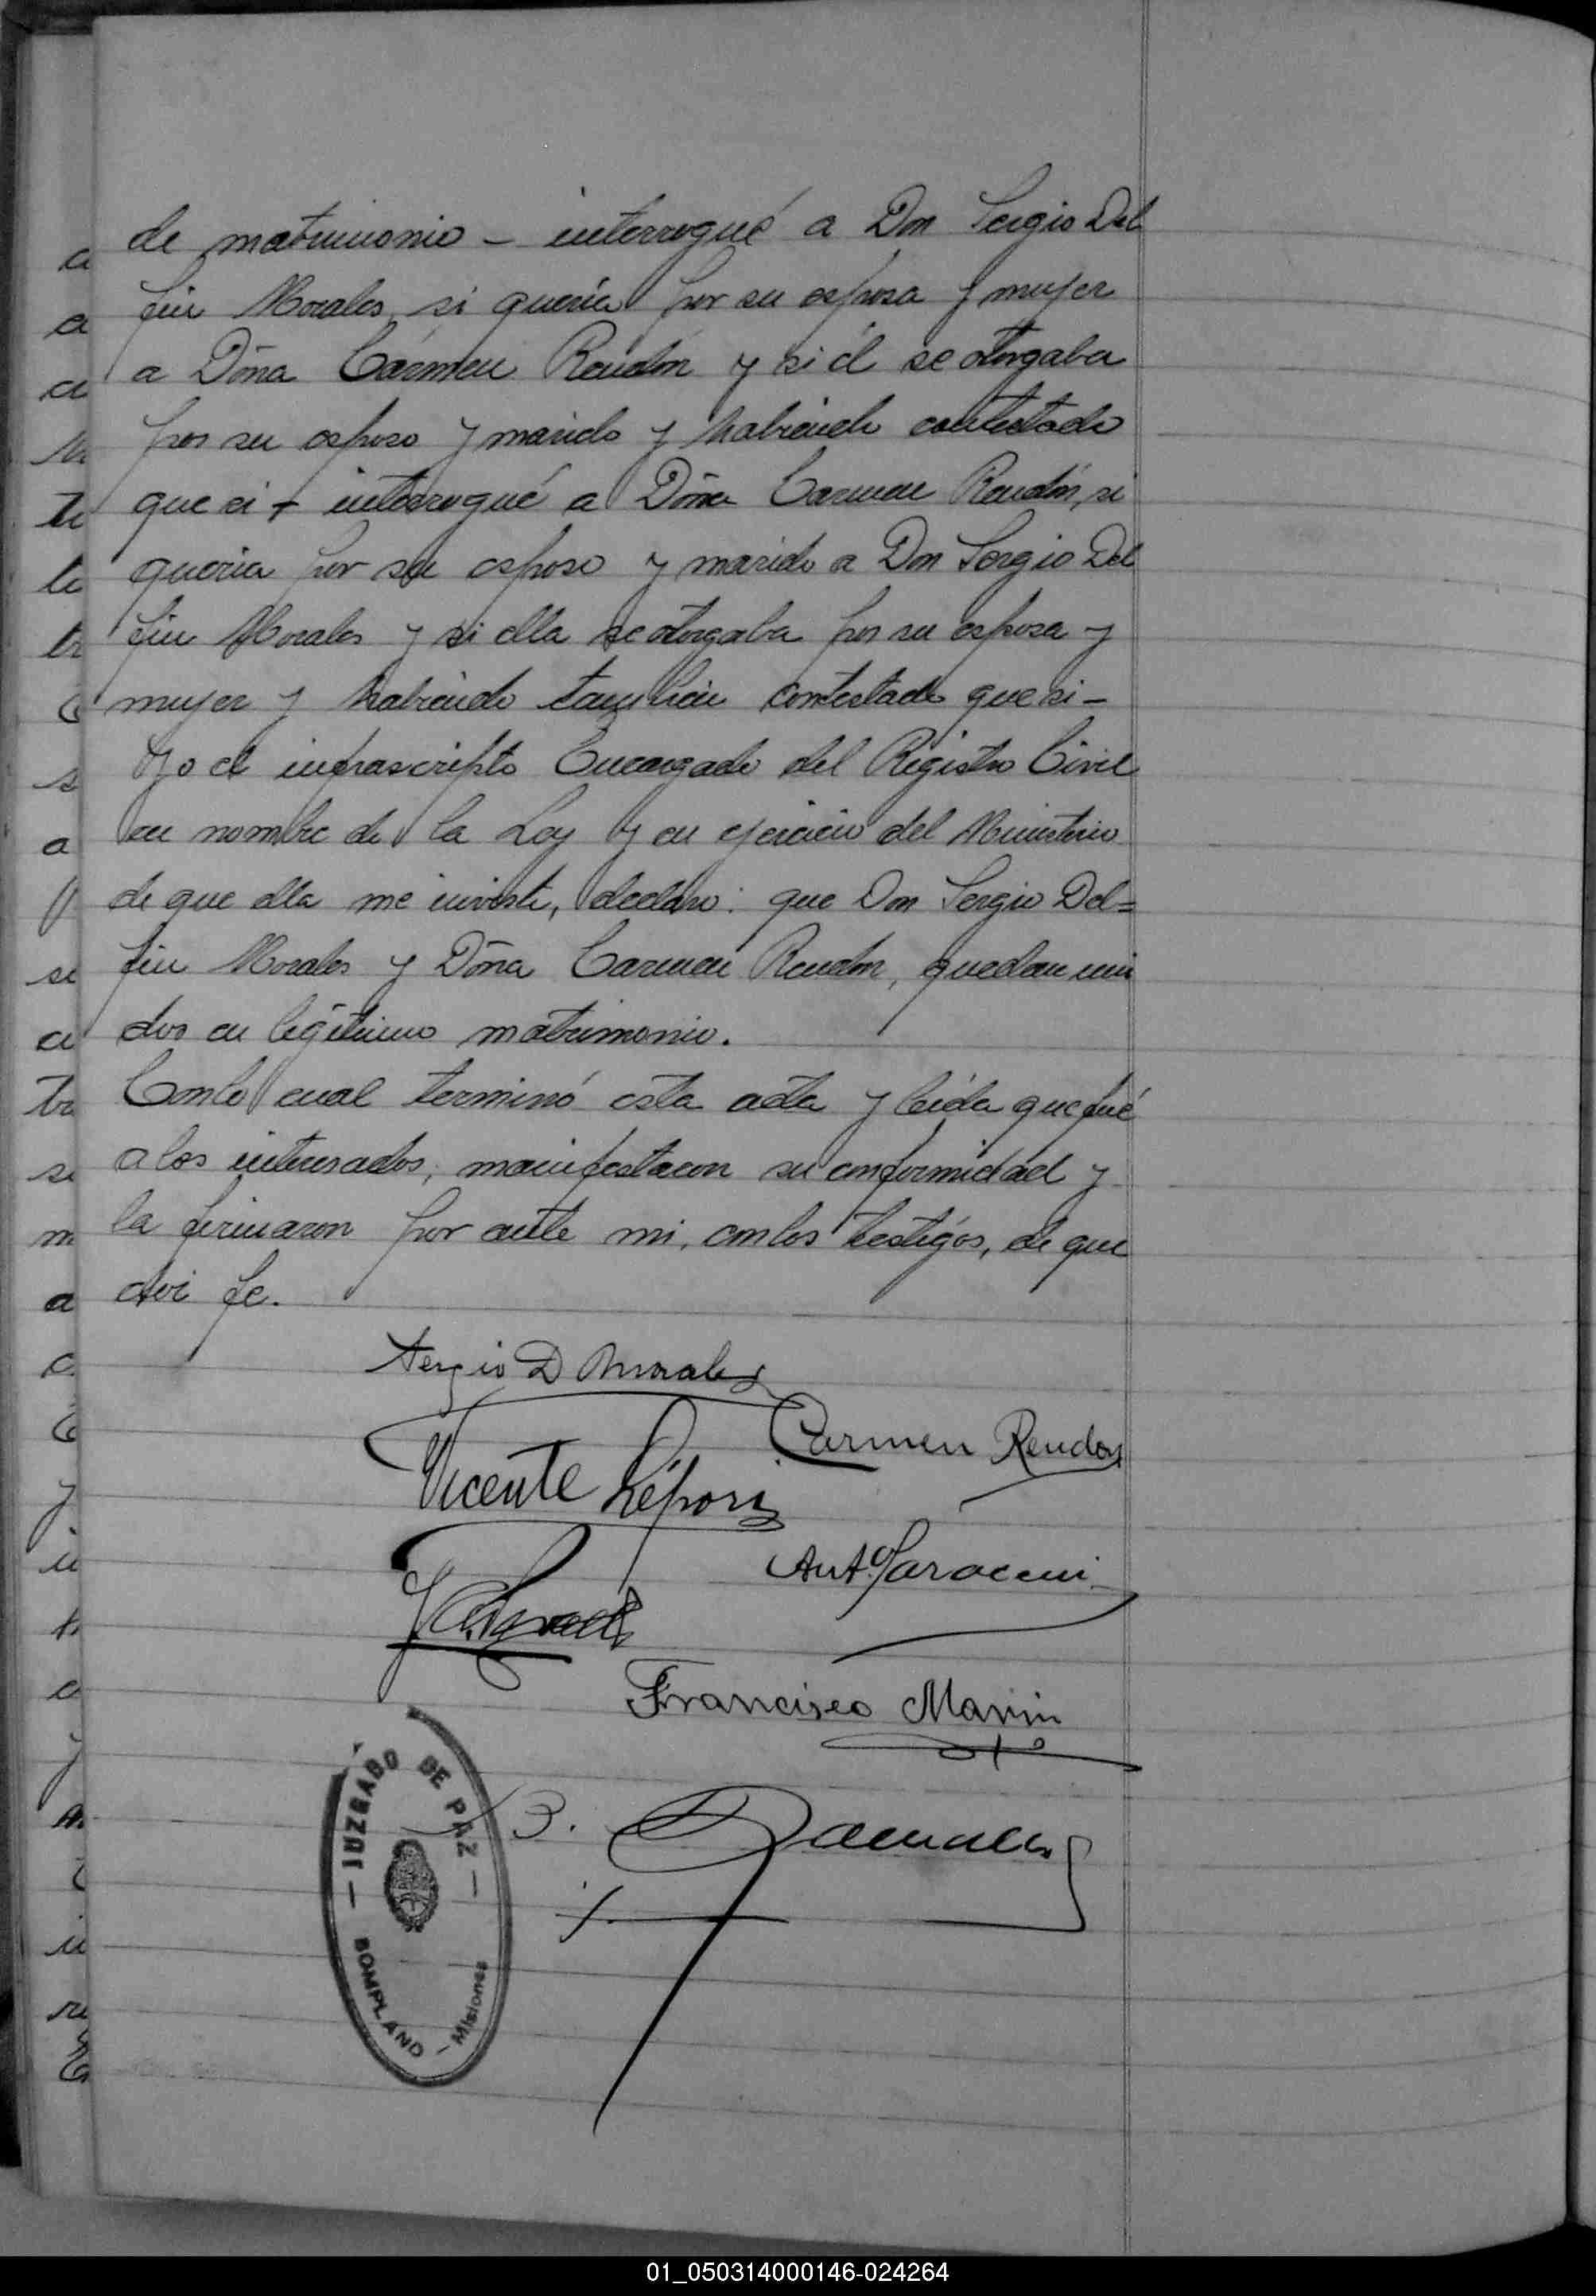 de matrimonio – interrogué a Don Sergio Del
fin Morales, si quería por su esposa y mujer
a Doña Cármen Rendón y si él se otorgaba
por su esposo y marido y habiendo contestado
que si – interrogué a Doña Carmen Rendón, si
queria por su esposo y marido a Don Sergio Del
fin Morales y si ella se otorgaba por su esposa y
mujer y habiendo tambien contestado que si –
Yo el infrascripto Encargado del Registro Civil
en nombre de la Ley y en ejercicio del Ministerio
de que ella me inviste, declaro: que Don Sergio Del=
fin Morales y Doña Carmen Rendon, quedan uni
dos en legítimo matrimonio.
Con lo cual terminó esta acta y leída que fué
a los interesados, manifestaron su conformidad y
la firmaron por ante mi, con los testigos, de que
doi fe.
Sergio D Morales
Carmen Rendon
Vicente Lépori
Ant. Saraceni
Francisco Marin
JUZGADO DE PAZ
BOMPLAND – Misiones
B.
01_050314000146-024264